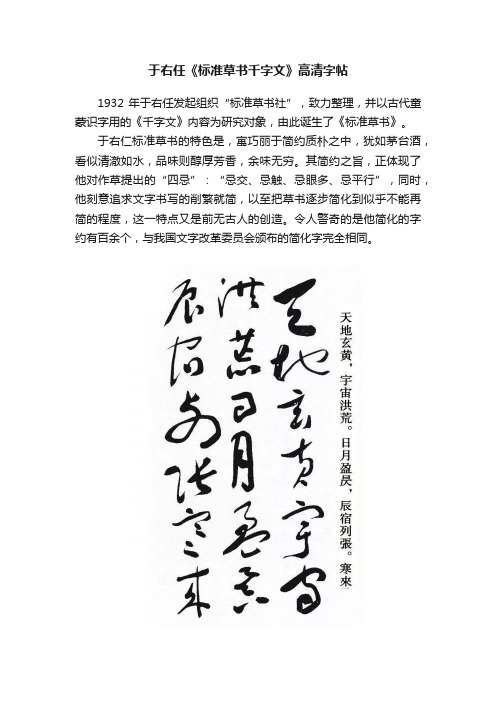 于右任《标准草书千字文》高清字帖
1932 年于右任发起组织“标准草书社”，致力整理，并以古代童
蒙识字用的《千字文》内容为研究对象，由此诞生了《标准草书》。
于右仁标准草书的特色是，寓巧丽于简约质朴之中，犹如茅台酒，
看似清澈如水，品味则醇厚芳香，余味无穷。其简约之旨，正体现了
他对作草提出的“四忌”：“忌交、忌触、忌眼多、忌平行”，同时，
他刻意追求文字书写的削繁就简，以至把草书逐步简化到似乎不能再
简的程度，这一特点又是前无古人的创造。令人警奇的是他简化的字
约有百余个，与我国文字改革委员会颁布的简化字完全相同。
天地玄黄，宇宙洪荒。日月盈昃，辰宿列張。寒來
天地玄黄宇宙
洪荒日月盈昃
辰宿列張寒來